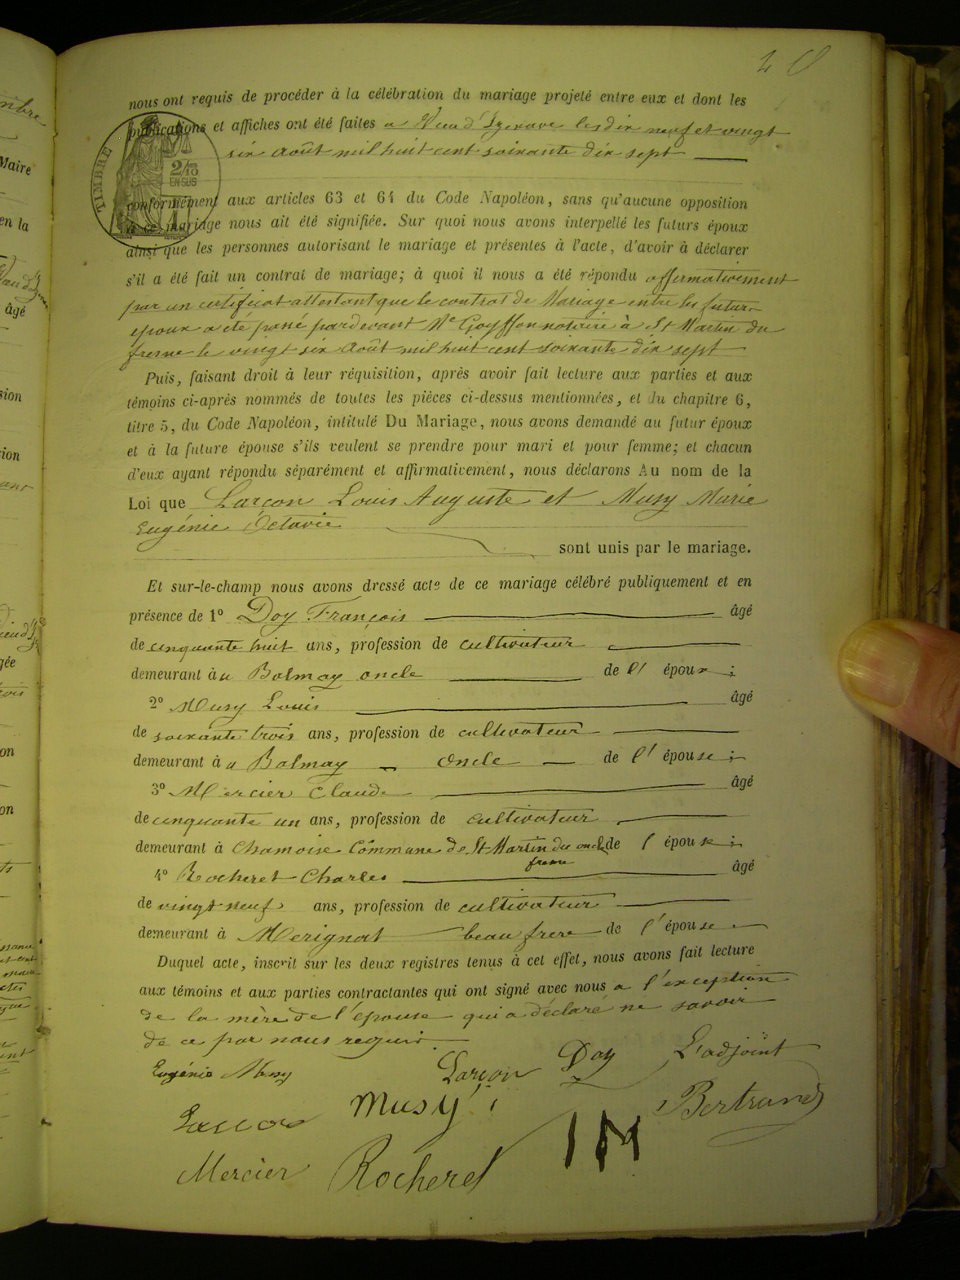 nous ont requis de procéder à la célébration du mariage projeté entre eux et dont les
publications et affiches ont été faites a Vieu d'Izenave les dix neuf et vingt
six Août mil huit cent soixante dix sept
TIMBRE
2/10
EN SUS
conformément aux articles 63 et 64 du Code Napoléon, sans qu'aucune opposition
à ce mariage nous ait été signifiée. Sur quoi nous avons interpellé les futurs époux
ainsi que les personnes autorisant le mariage et présentes à l'acte, d'avoir à déclarer
s'il a été fait un contrat de mariage; à quoi il nous a été répondu affirmativement
par un certificat attestant que le contrat de Mariage entre les futurs
époux a été passé pardevant Me Goyffon notaire à St Martin du
fresne le vingt six Août mil huit cent soixante dix sept
Puis, faisant droit à leur réquisition, après avoir fait lecture aux parties et aux
témoins ci-après nommés de toutes les pièces ci-dessus mentionnées, et du chapitre 6,
titre 5, du Code Napoléon, intitulé Du Mariage, nous avons demandé au futur époux
et à la future épouse s'ils veulent se prendre pour mari et pour femme; et chacun
d'eux ayant répondu séparément et affirmativement, nous déclarons Au nom de la
Loi que Larçon Louis Auguste et Musy Marie
Eugénie Octavie
sont unis par le mariage.
Et sur-le-champ nous avons dressé acte de ce mariage célébré publiquement et en
présence de 1° Doy François âgé
de cinquante huit ans, profession de cultivateur
demeurant à a Balmay oncle de l' époux ;
2° Musy Louis âgé
de soixante trois ans, profession de cultivateur
demeurant à a Balmay oncle de l' épouse ;
3° Mercier Claude âgé
de cinquante un ans, profession de cultivateur
demeurant à Chamoise Commune de St Martin du oncle de l épouse ;
fresne
4° Rocheret Charles âgé
de vingt neuf ans, profession de cultivateur
demeurant à Mérignat beau frère de l'épouse
Duquel acte, inscrit sur les deux registres tenus à cet effet, nous avons fait lecture
aux témoins et aux parties contractantes qui ont signé avec nous a l'exception
de la mère de l'épouse qui a déclaré ne savoir
de ce par nous requis
Eugénie Musy Larçon Doy L'adjoint
Musy Bertrand
Mercier Rocheret